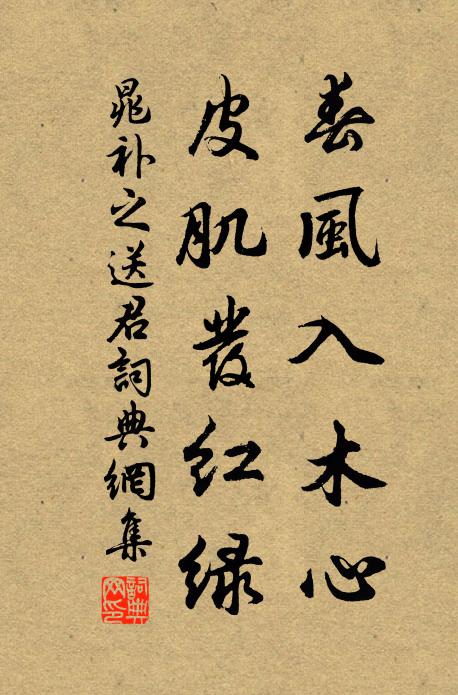 春風入木心
皮肌發紅綠
晁补之送君詞典網集
詞典网印